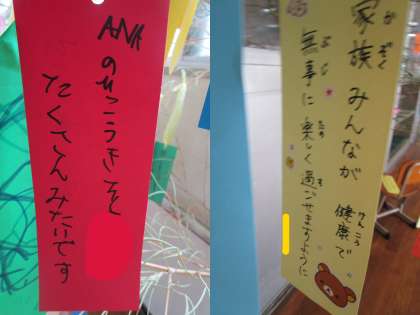 ANAのひこうきを
たくさんみたいです
家族みんなが 健康で
無事に楽しく過ごせますように